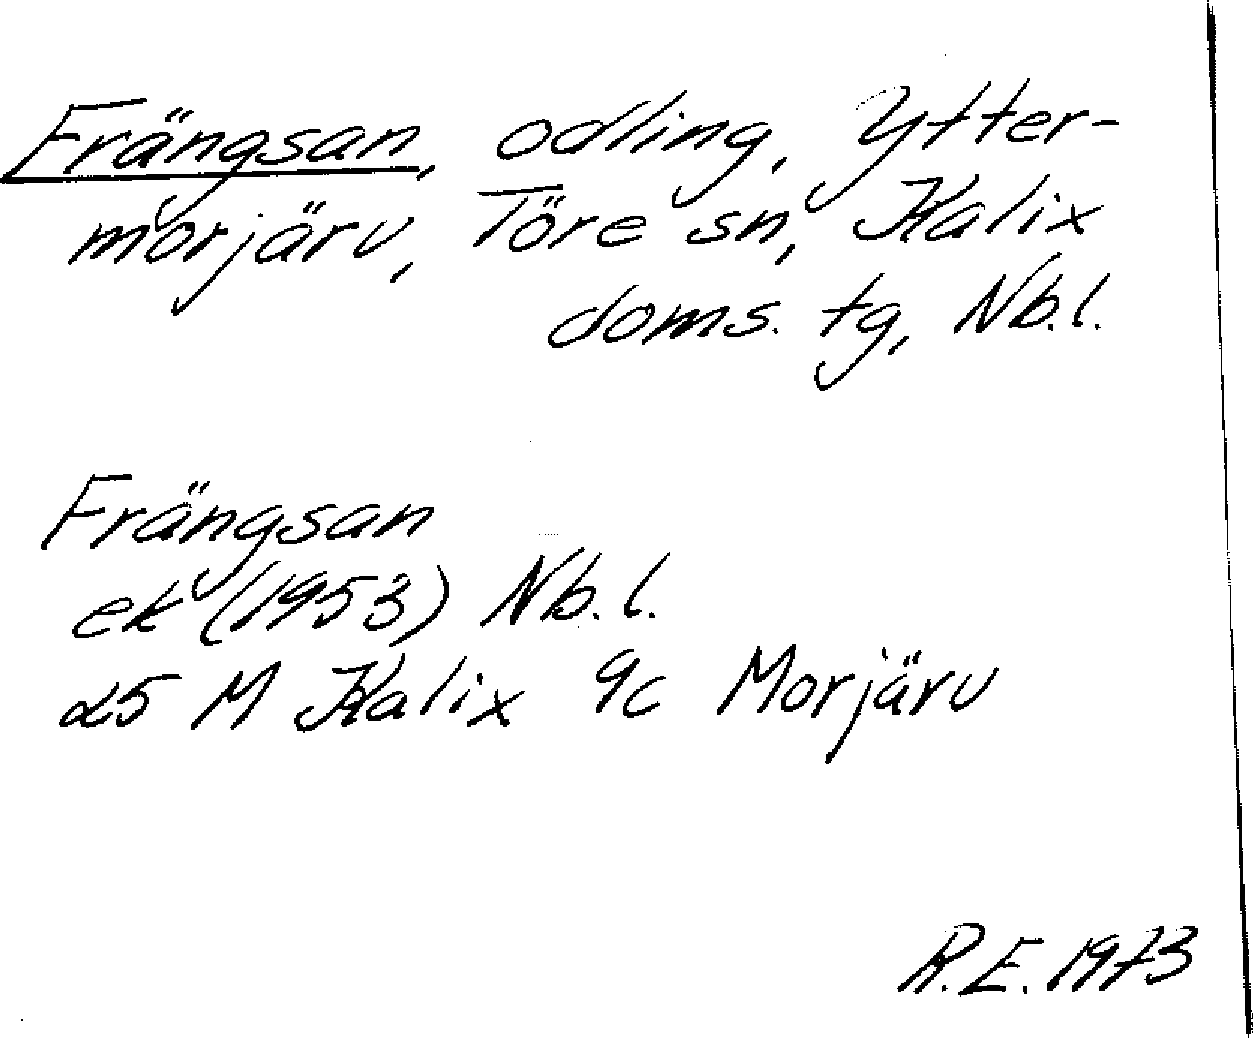 Frängsan, odling, Ytter-
morjärv, Töre sn, Kalix
doms. tg, Nb.l.
Frängsan
ek (1953) Nb.l.
25 M Kalix 9c Morjärv
R.E. 1973